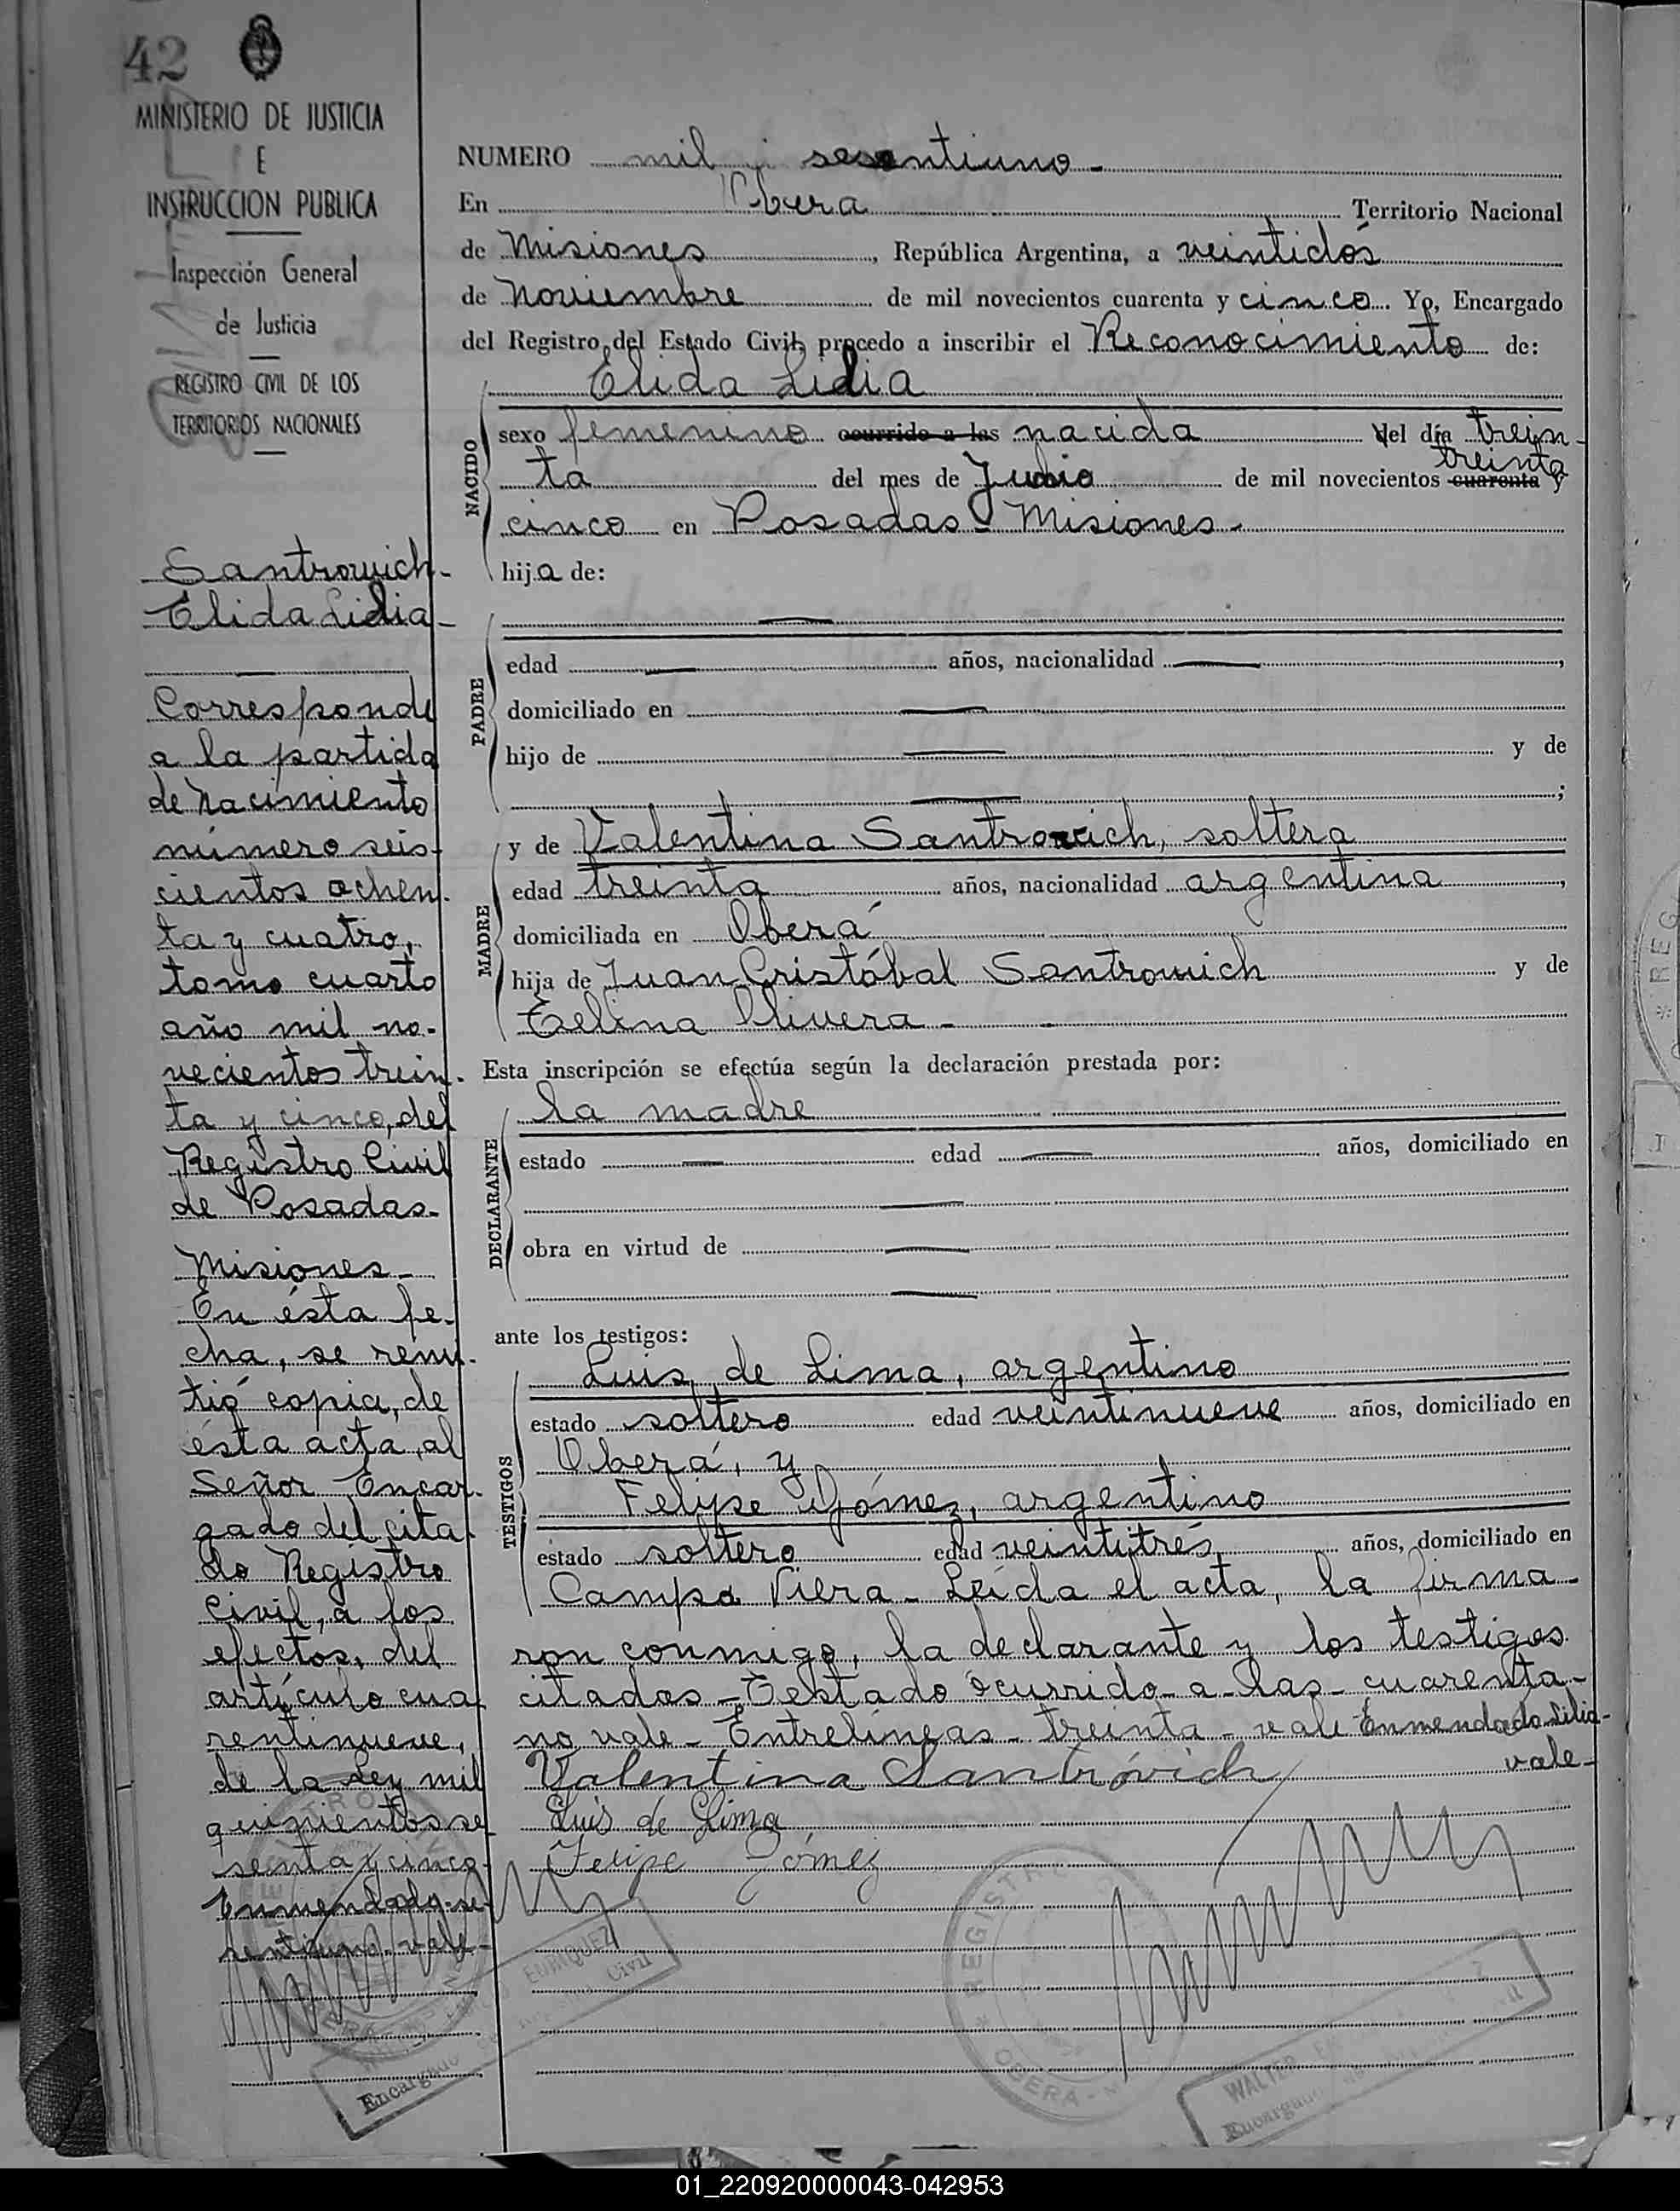 42
MINISTERIO DE JUSTICIA
E
INSTRUCCION PUBLICA
Inspección General
de Justicia
REGISTRO CIVIL DE LOS
TERRITORIOS NACIONALES
Santrowich-
Elida Lidia-
Corresponde
a la partida
de nacimiento
número seis-
cientos ochen-
ta y cuatro,
tomo cuarto
año mil no-
vecientos trein-
ta y cinco, del
Registro Civil
de Posadas-
Misiones-
En ésta fe-
cha, se remi-
tió copia, de
ésta acta, al
Señor Encar-
gado del cita
do Registro
Civil, a los
efectos, del
artículo cua
rentinueve,
de la Ley mil
quinientos se
senta y cinco-
Enmendado: se-
sentiuno- vale-
NUMERO mil sesentiuno-
En Obera Territorio Nacional
de Misiones, República Argentina, a veintidós
de Noviembre de mil novecientos cuarenta y cinco. Yo, Encargado
del Registro del Estado Civil, procedo a inscribir el Reconocimiento de:
Elida Lidia
NACIDO
sexo femenino ocurrido a las nacida del día trein-
treinta
ta del mes de de mil novecientos cuarenta y
cinco en Posadas- Misiones-
hija de:
PADRE
edad años, nacionalidad ,
domiciliado en
hijo de y de
;
MADRE
y de Valentina Santrowich, soltera
edad treinta años, nacionalidad argentina,
domiciliada en Oberá
hija de Juan Cristóbal Santrowich y de
Celina Olivera-
Esta inscripción se efectúa según la declaración prestada por:
DECLARANTE
la madre
estado edad años, domiciliado en
obra en virtud de
ante los testigos:
TESTIGOS
Luis de Lima, argentino
estado soltero edad veintinueve años, domiciliado en
Oberá, y
Felipe Gómez, argentino
estado soltero edad veintitrés años, domiciliado en
Campo Viera- Leída el acta, la firma-
ron conmigo, la declarante y los testigos
citados- Testado ocurrido-a-las-cuarenta-
no vale- Entrelíneas- treinta- vale Enmendado Lidia-
vale-
Valentina Santróvich
Luis de Lima
Felipe Gómez
REGISTRO
OBERA-
ENRIQUEZ
Encargado Civil
WALTER
Encargado
01_220920000043-042953